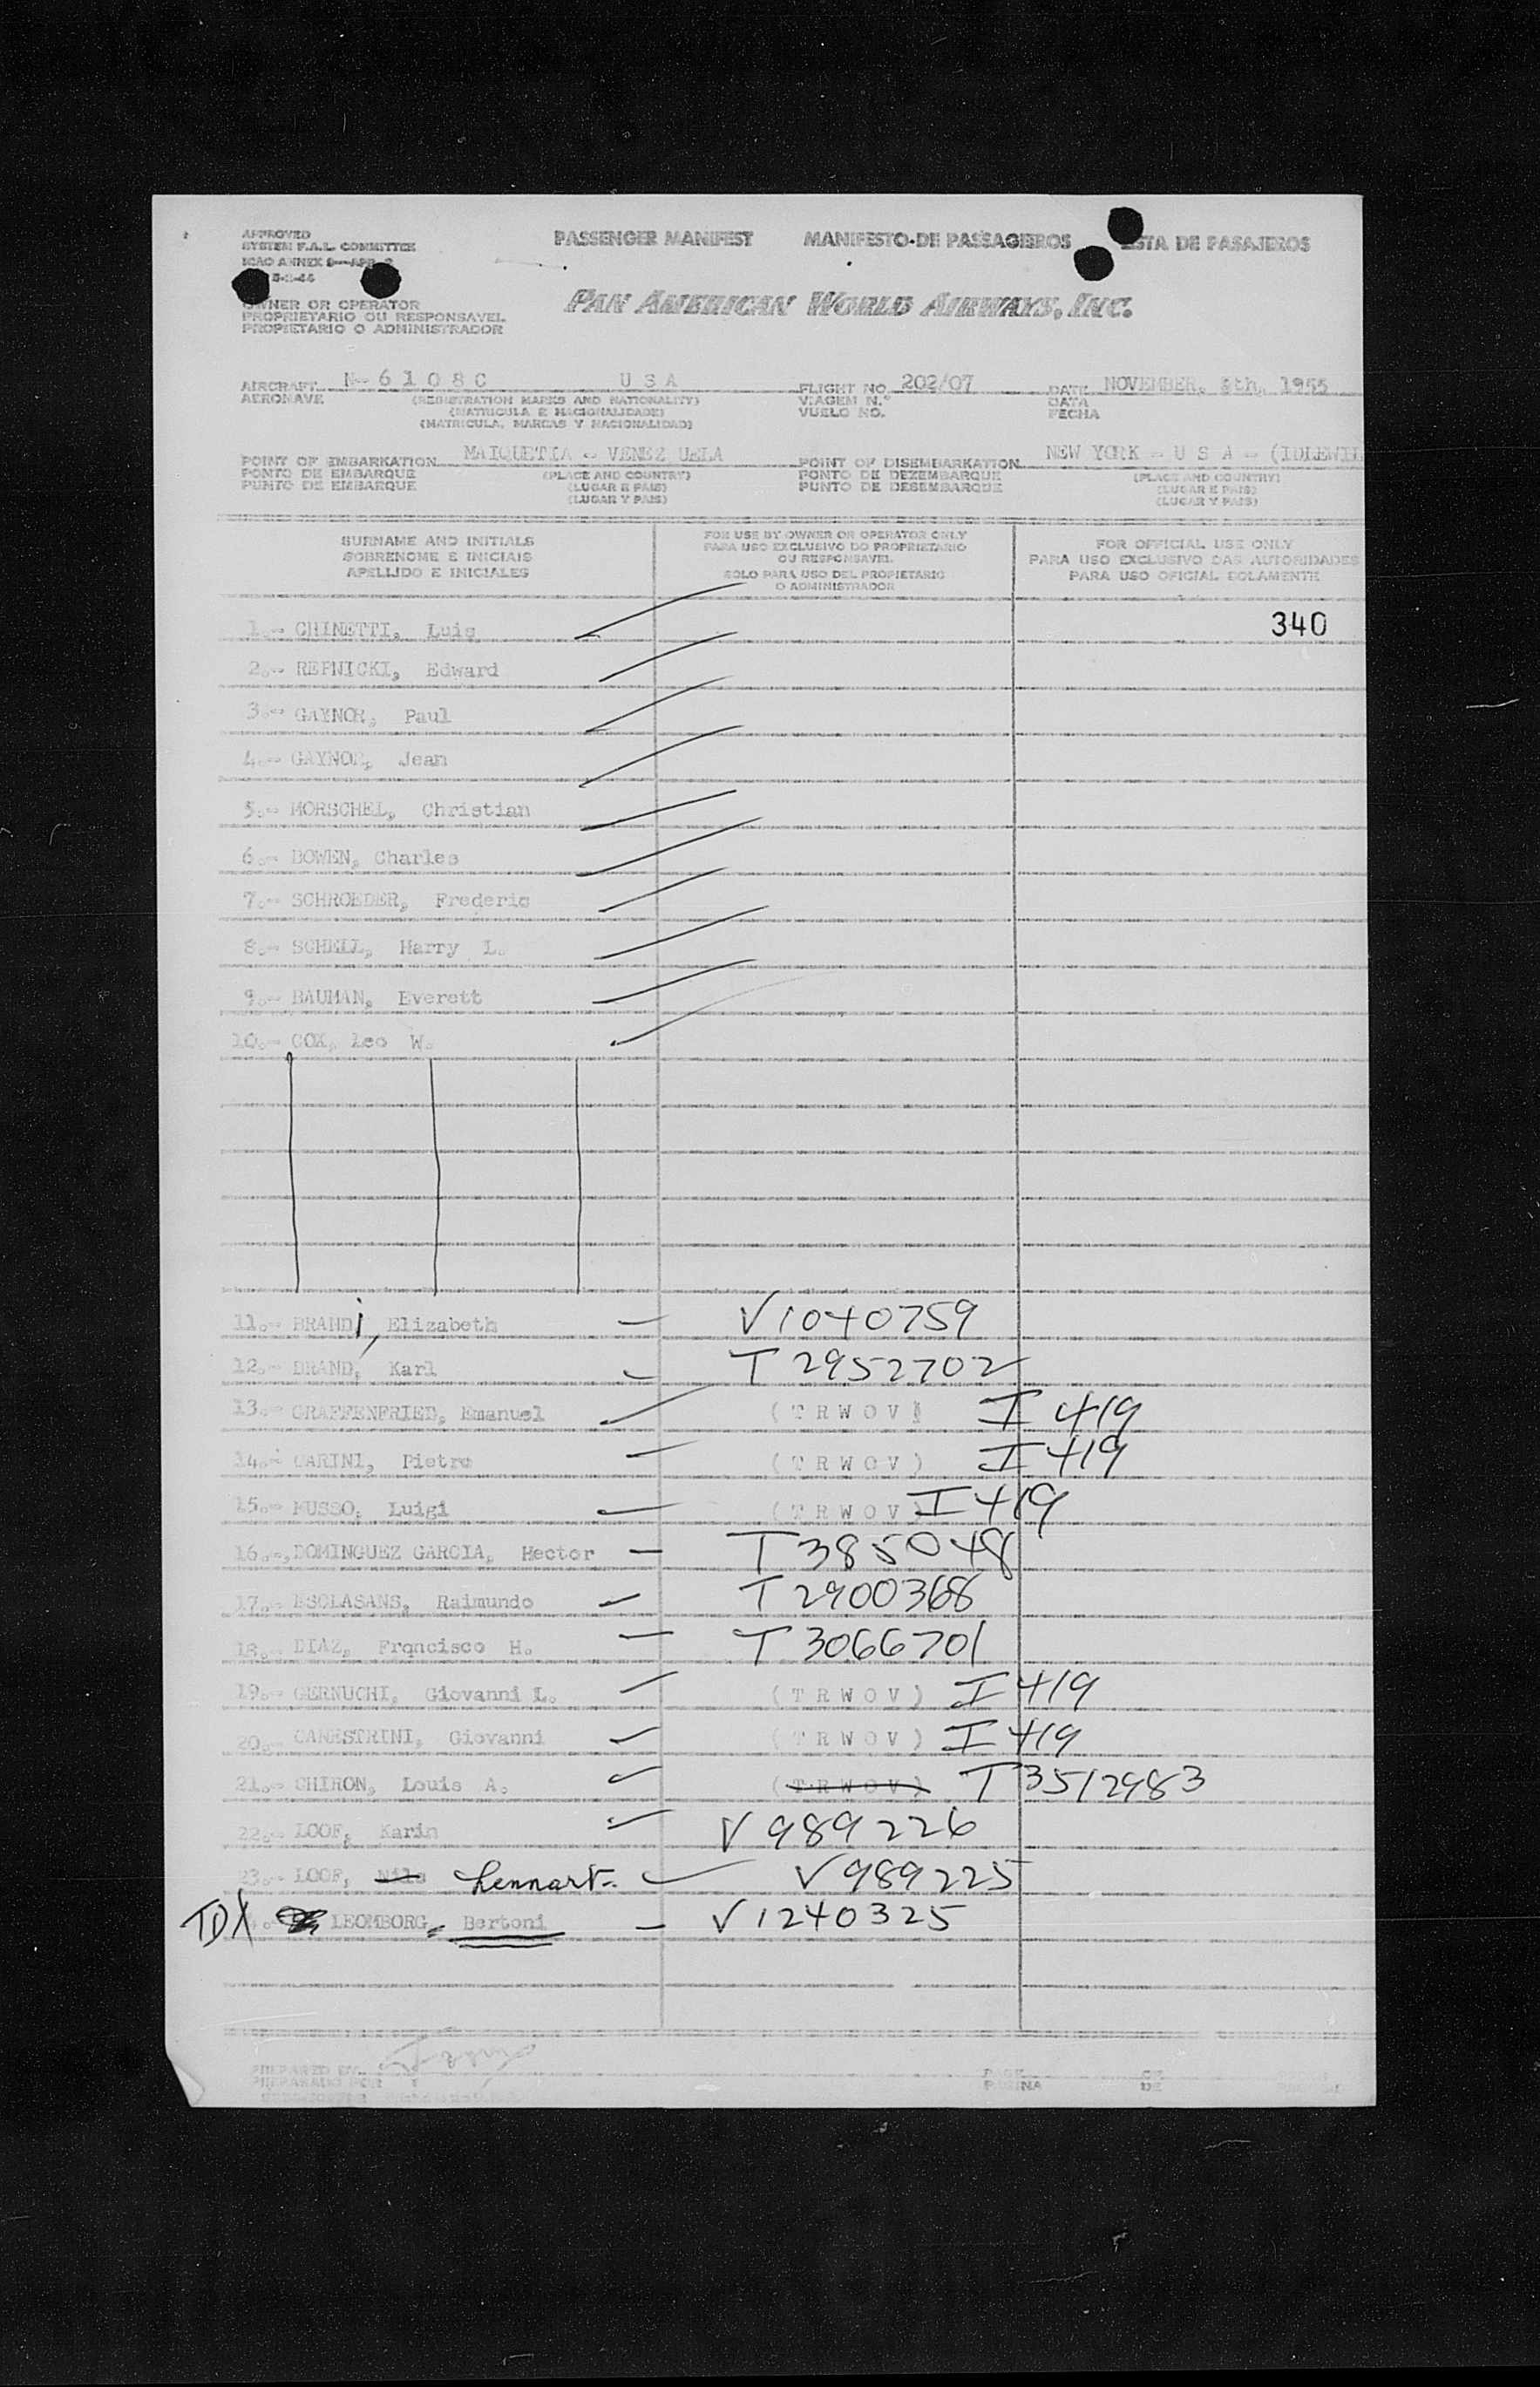 APPROVED
SYSTEM F.A.L. COMMITTEE
ICAO ANNEX 9—APP. 2
PASSENGER MANIFEST MANIFESTO DE PASSAGEIROS LISTA DE PASAJEROS
OWNER OR OPERATOR
PROPRIETARIO OU RESPONSAVEL
PROPIETARIO O ADMINISTRADOR
PAN AMERICAN WORLD AIRWAYS, INC.
AIRCRAFT N-6108C USA FLIGHT NO. 202/07 DATE NOVEMBER, 8th, 1955
AERONAVE (REGISTRATION MARKS AND NATIONALITY) VIAGEM N.º DATA
(MATRICULA E NACIONALIDADE) VUELO NO. FECHA
(MATRICULA, MARCAS Y NACIONALIDAD)
POINT OF EMBARKATION MAIQUETIA - VENEZ UELA POINT OF DISEMBARKATION NEW YORK - U S A - (IDLEWIL
PONTO DE EMBARQUE (PLACE AND COUNTRY) PONTO DE DEZEMBARQUE (PLACE AND COUNTRY)
PUNTO DE EMBARQUE (LUGAR E PAIS) PUNTO DE DESEMBARQUE (LUGAR E PAIS)
(LUGAR Y PAIS) (LUGAR Y PAIS)
SURNAME AND INITIALS FOR USE BY OWNER OR OPERATOR ONLY FOR OFFICIAL USE ONLY
SOBRENOME E INICIAIS PARA USO EXCLUSIVO DO PROPRIETARIO PARA USO EXCLUSIVO DAS AUTORIDADES
OU RESPONSAVEL
APELLIDO E INICIALES SOLO PARA USO DEL PROPIETARIO PARA USO OFICIAL SOLAMENTE
O ADMINISTRADOR
1.- CHINETTI, Luig 340
2.- REPNICKI, Edward
3.- GAYNOR, Paul
4.- GAYNOR, Jean
5.- MORSCHEL, Christian
6.- BOWEN, Charles
7.- SCHROEDER, Frederic
8.- SCHELL, Harry L.
9.- BAUMAN, Everett
10.- COX, Leo W.
11.- BRANDi, Elizabeth V1040759
12.- BRAND, Karl T2952702
13.- GRAFFENFRIED, Emanuel (TRWOV) I 419
14.- CARINI, Pietro (TRWOV) I 419
15.- MUSSO, Luigi (TRWOV) I 419
16.-, DOMINGUEZ GARCIA, Hector T385048
17.- ESCLASANS, Raimundo T2900368
18.- DIAZ, Francisco H. T3066701
19.- CERNUCHI, Giovanni L. (TRWOV) I 419
20.- CANESTRINI, Giovanni (TRWOV) I 419
21.- CHIRON, Louis A. (TRWOV) T3512983
22.- LOOF, Karin V989226
23.- LOOF, Nils Lennart V989225
TDX LEOMBORG, Bertoni V1240325
PREPARED BY
PREPARADO POR
PAGINA DE